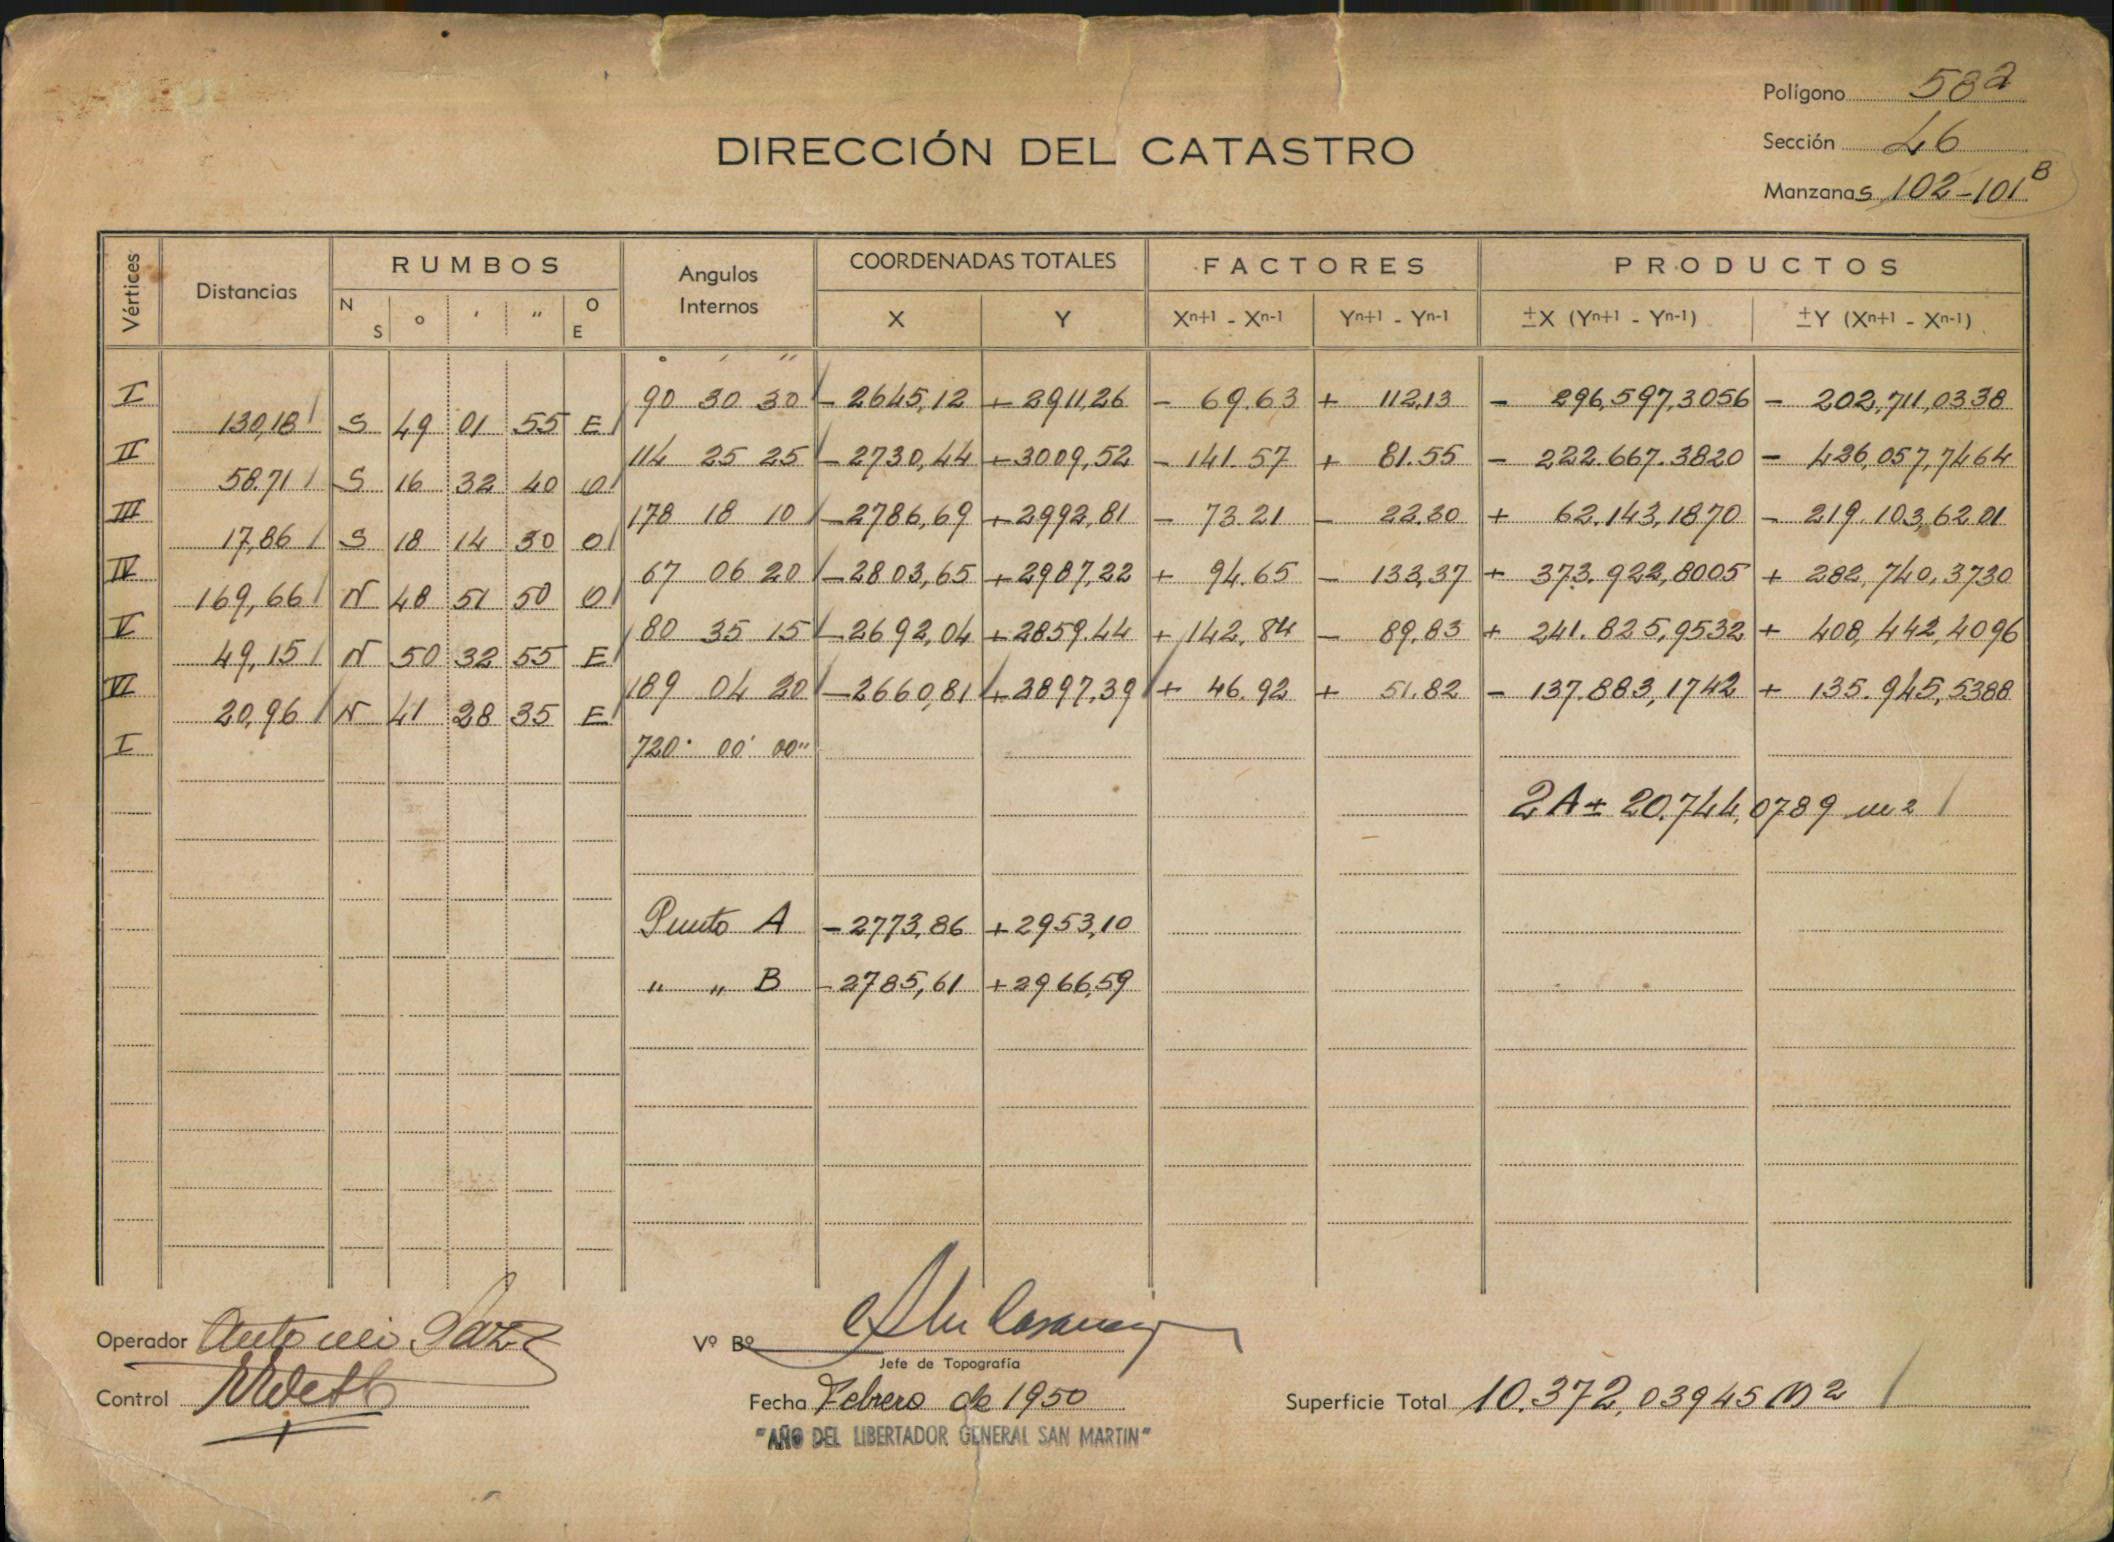 Polígono 58a
Sección 46
Manzanas 102-101 B
DIRECCIÓN DEL CATASTRO
Vértices Distancias RUMBOS Angulos Internos COORDENADAS TOTALES FACTORES PRODUCTOS
N S ° ' " O E X Y Xn+1 - Xn-1 Yn+1 - Yn-1 ±X (Yn+1 - Yn-1) ±Y (Xn+1 - Xn-1)
° ' "
I 90 30 30 -2645,12 +2911,26 - 69.63 + 112,13 - 296,597,3056 - 202,711,0338
130,18 S 49 01 55 E
II 114 25 25 -2730,44 +3009,52 - 141.57 + 81.55 - 222.667.3820 - 426,057,7464
58.71 S 16 32 40 O
III 178 18 10 -2786,69 +2992,81 - 73.21 - 22.30 + 62.143,1870 - 219.103,6201
17,86 S 18 14 30 O
IV 67 06 20 -2803,65 +2987,22 + 94.65 - 133,37 + 373.922,8005 + 282,740,3730
169,66 N 48 51 50 O
V 80 35 15 -2692,04 +2859.44 + 142,84 - 89,83 + 241.825,9532 + 408,442,4096
49,15 N 50 32 55 E
VI 189 04 20 -2660,81 +2897,39 + 46.92 + 51.82 - 137.883,1742 + 135.945,5388
20,96 N 41 28 35 E
I 720° 00' 00"
2A ± 20.744,0789 m2
Punto A -2773,86 +2953,10
" " B -2785,61 +2966,59
Operador Antonio
Vº Bº
Jefe de Topografía
Control
Fecha Febrero de 1950
Superficie Total 10.372,03945 m2
"AÑO DEL LIBERTADOR GENERAL SAN MARTIN"